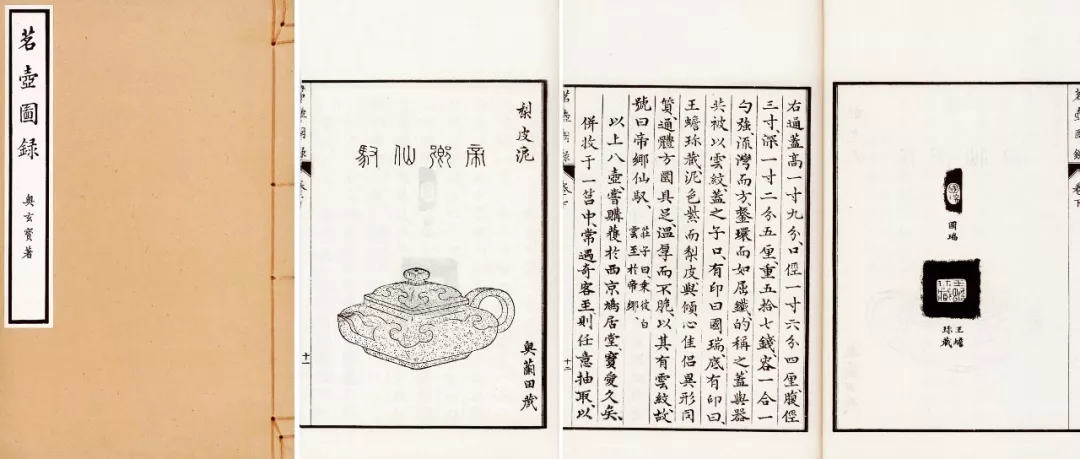 茗壺圖錄
奧玄寶著
梨皮泥
帝鄉仙馭
奧蘭田藏
十一
右通蓋高一寸九分、口徑一寸六分四厘腹徑
三寸、深一寸二分五厘、重五拾七錢、容一合一
勺強流灣而方、鋬環而如屈纖的稱之蓋與器
共被以雲紋、蓋之子口、有印曰國瑞、底有印曰、
王蟾珎藏、泥色紫而梨皮與傾心佳侶異形同
質、通體方圓具足、溫厚而不脆、以其有雲紋、故
號曰帝鄉仙馭、莊子曰、乘彼白雲至於帝鄉、
以上八壺、嘗購獲於西京鳩居堂、寶愛久矣、
併收于一筥中、常遇奇客至、則任意抽取、以
茗壺圖錄
十二
國瑞
王蟾
珎藏
茗壺圖錄
卷下